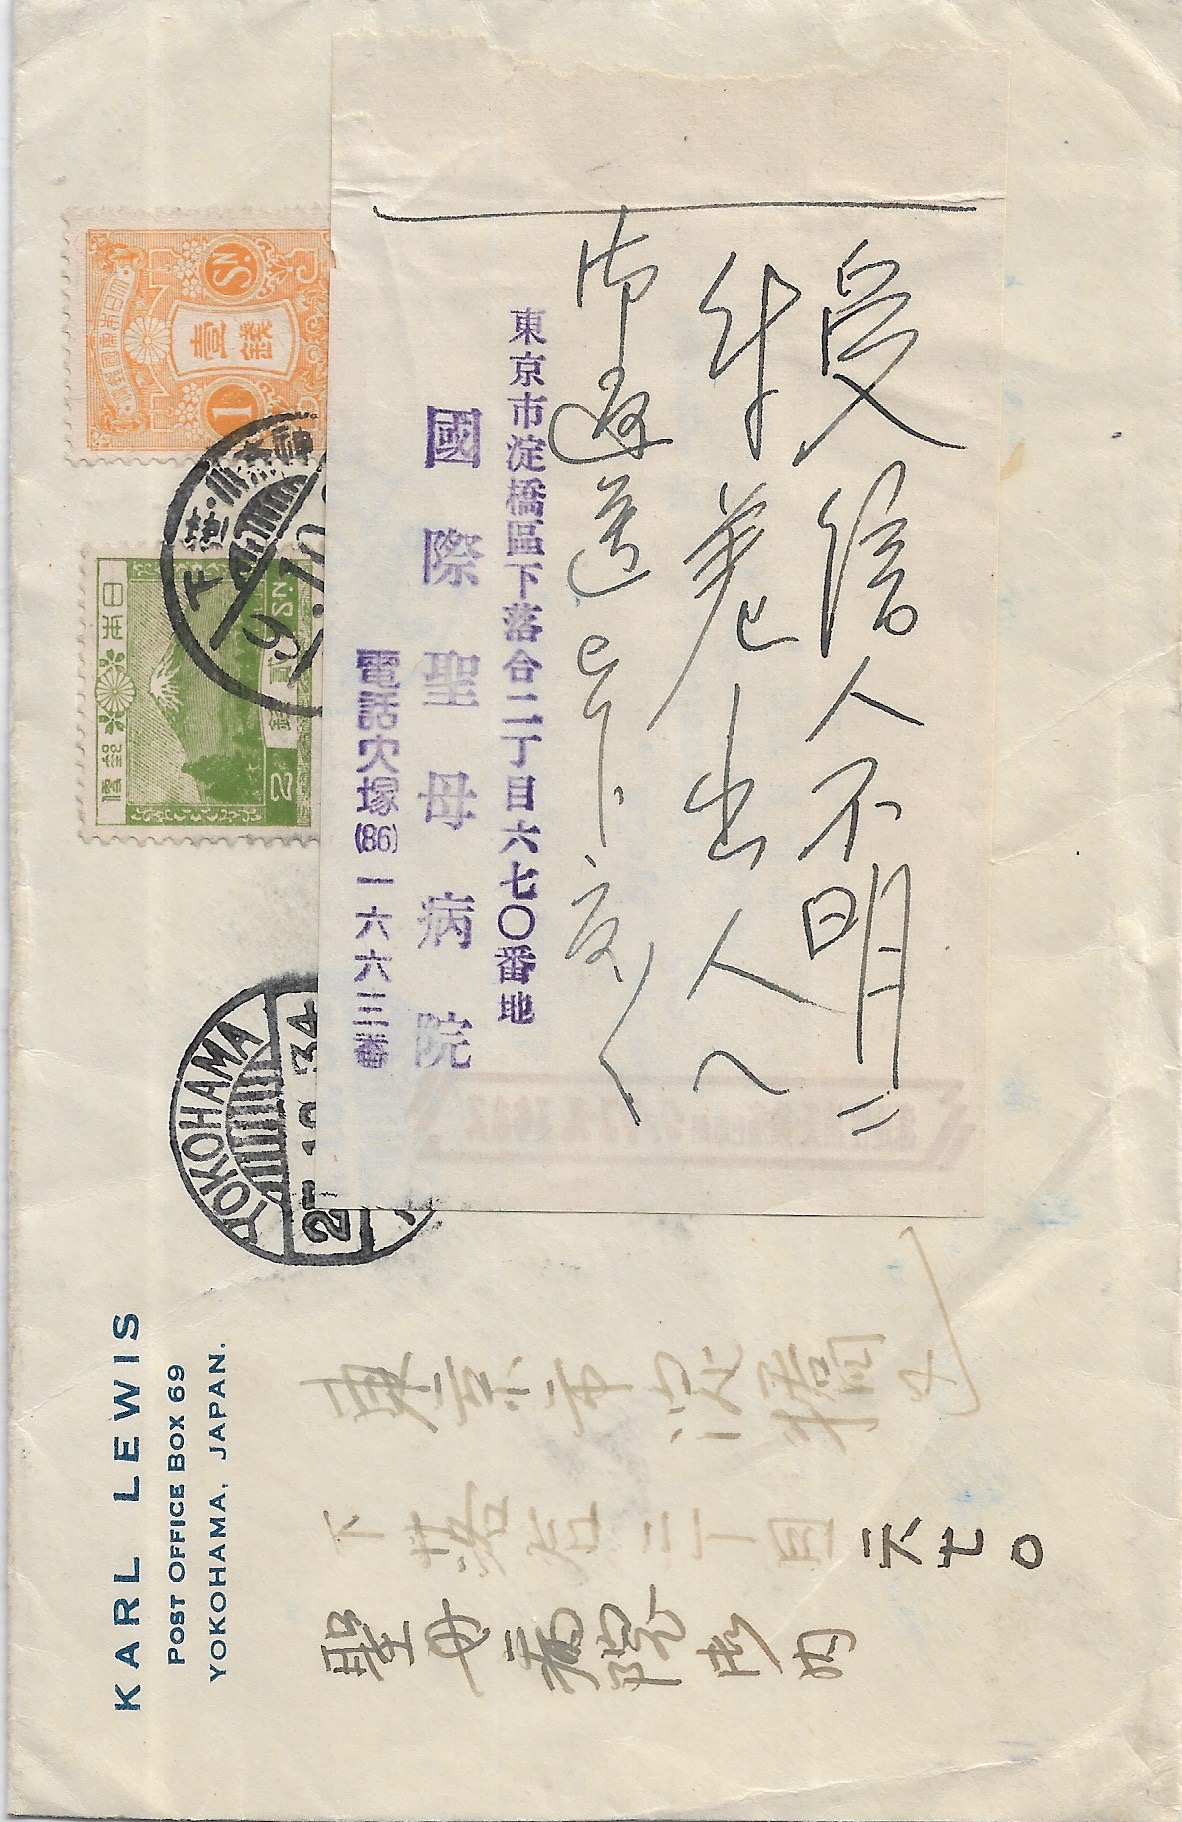 受信人不明ニ
付差出人へ
御返送申下度
東京市淀橋區下落合二丁目六七〇番地
國際聖母病院
電話大塚(86)一六六三番
大日本帝國郵便
壹錢
1
SN
日本郵便
貳錢
2
SN.
下
落
9.10
YOKOHAMA
27.10.34
KARL LEWIS
POST OFFICE BOX 69
YOKOHAMA, JAPAN.
東京市淀橋
下落合二丁目六七〇
聖母病院
内